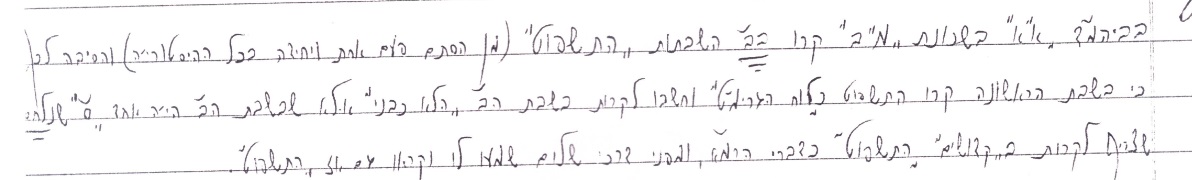 בביהמ"ד "א"א" בשכונת "מ"ב" קרו בב' השבתות "התשפוט" (מן הסתם פעם אחת ויחידה בכל ההיסטוריה) והסיבה לכך
כי בשבת הראשונה קרו התשפוט כלוח הגרימ"ט וחשבו לקרות בשבת הב' "הלא כבני" אלא שבשבת הב' היה אחד
שצריך לקרות ב"קדושים" "התשפוט" כדברי הרמ"א, ומפני דרכי שלום שמעו לו וקראו עם זו "התשפוט".